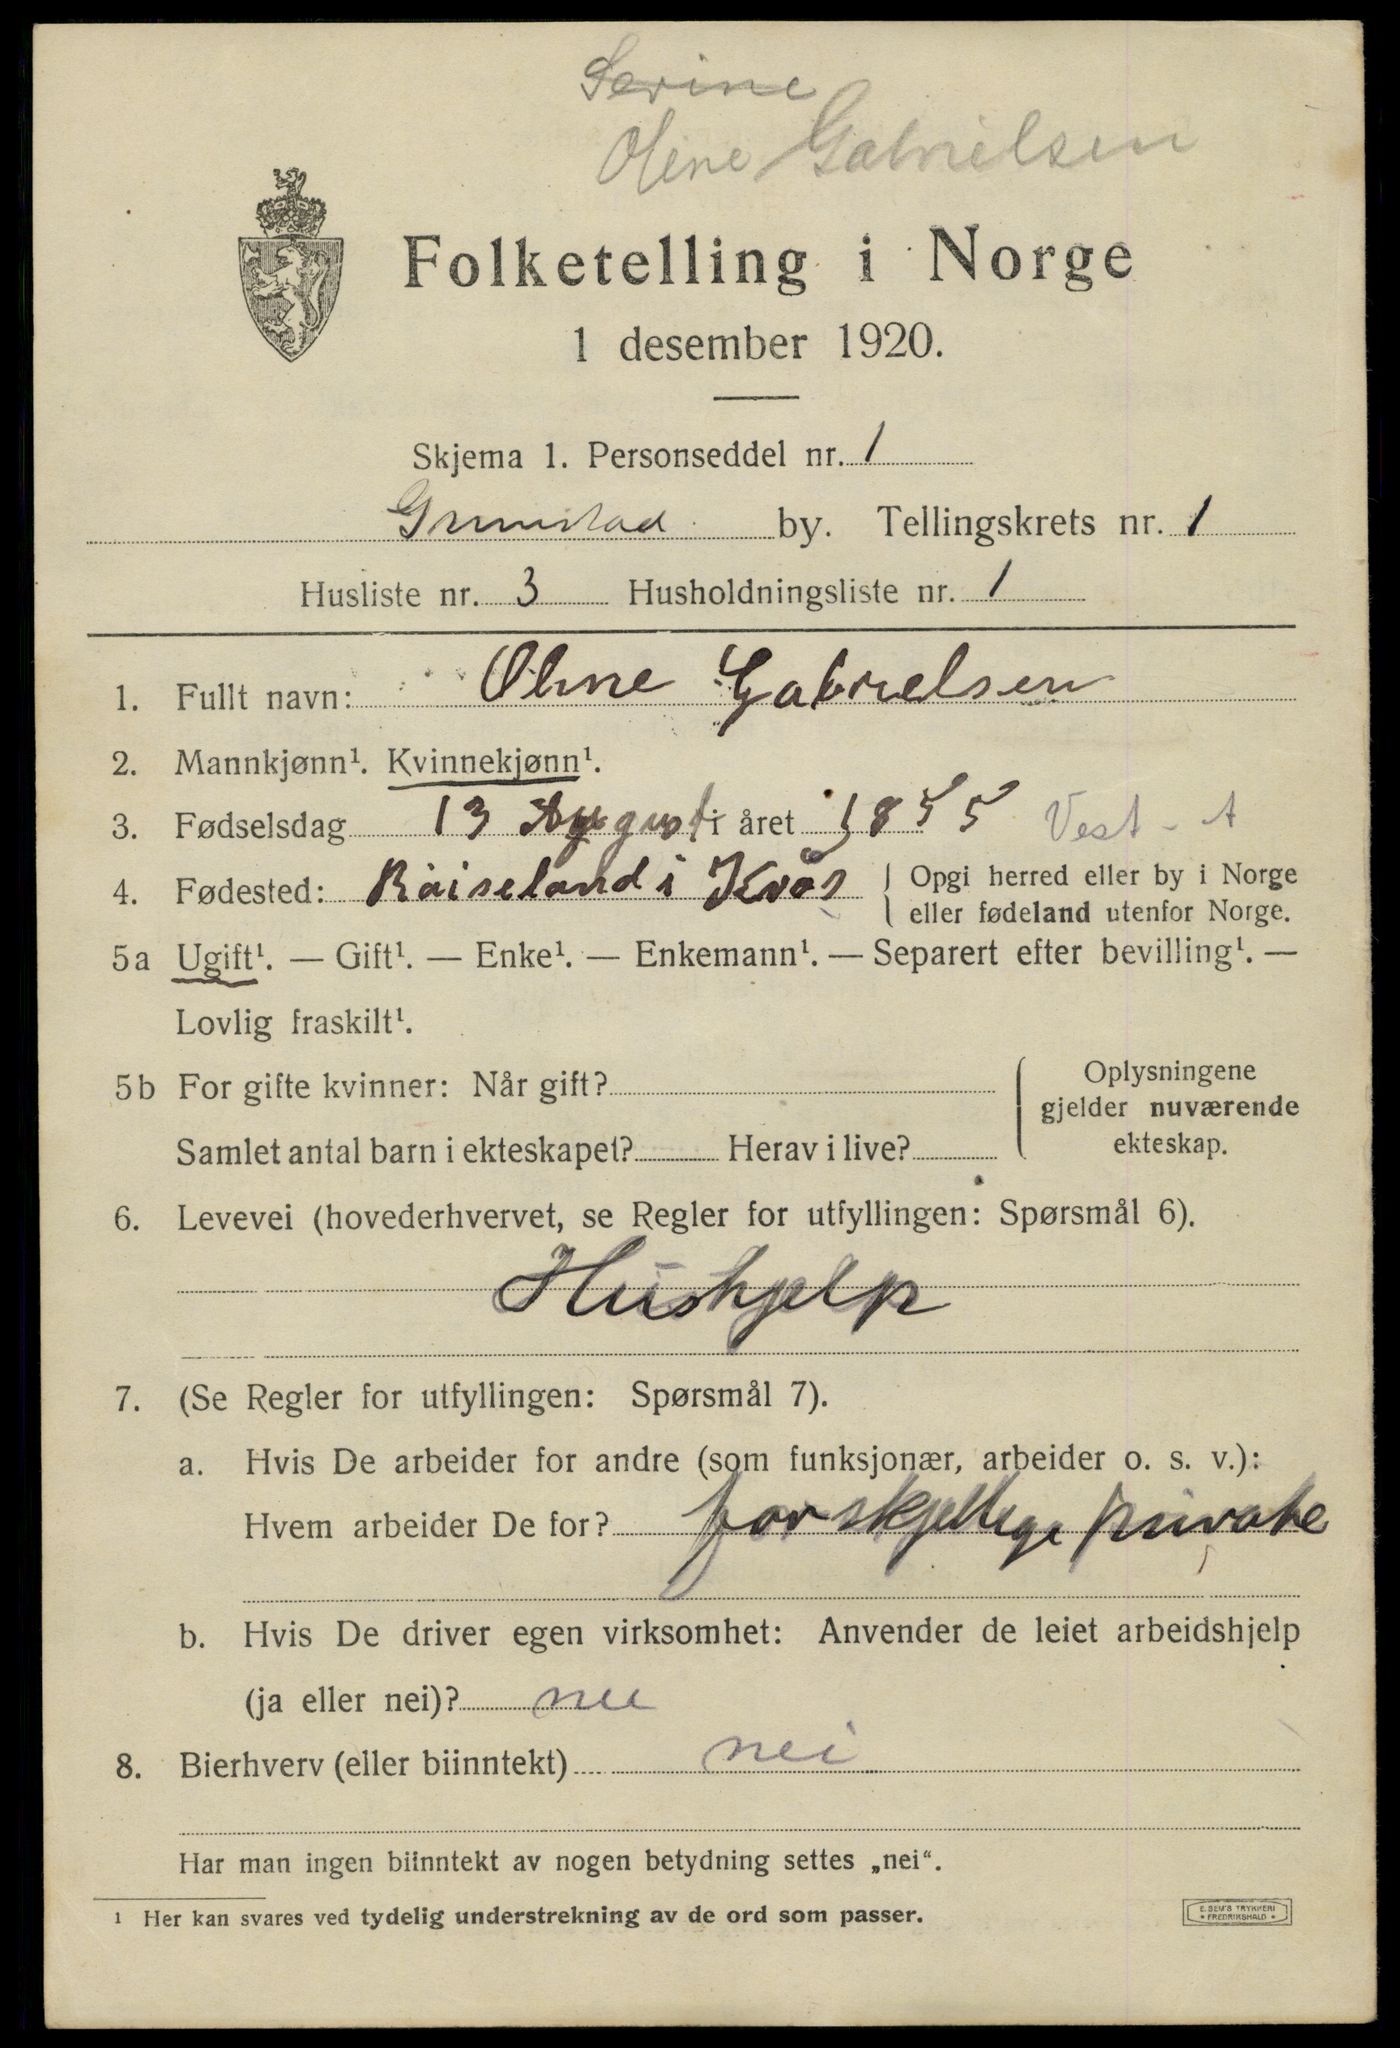 Serine
Olene Gabrielsen
Folketelling i Norge
1 desember 1920.
Skjema 1. Personseddel nr. 1
Grimstad by. Tellingskrets nr. 1
Husliste nr. 3 Husholdningsliste nr. 1
1. Fullt navn: Olene Gabrielsen
2. Mannkjønn¹. Kvinnekjønn¹.
3. Fødselsdag 13 August i året 1855 Vest-A
4. Fødested: Røiseland i Kvås { Opgi herred eller by i Norge
eller fødeland utenfor Norge.
5a Ugift¹. — Gift¹. — Enke¹. — Enkemann¹. — Separert efter bevilling¹. —
Lovlig fraskilt¹.
5b For gifte kvinner: Når gift?
Samlet antal barn i ekteskapet? Herav i live?
{ Oplysningene
gjelder nuværende
ekteskap.
6. Levevei (hovederhvervet, se Regler for utfyllingen: Spørsmål 6).
Hushjelp
7. (Se Regler for utfyllingen: Spørsmål 7).
a. Hvis De arbeider for andre (som funksjonær, arbeider o. s. v.):
Hvem arbeider De for? forskjellige private
b. Hvis De driver egen virksomhet: Anvender de leiet arbeidshjelp
(ja eller nei)? nei
8. Bierhverv (eller biinntekt) nei
Har man ingen biinntekt av nogen betydning settes „nei“.
¹ Her kan svares ved tydelig understrekning av de ord som passer.
E. SEM'S TRYKKERI
• FREDRIKSHALD •